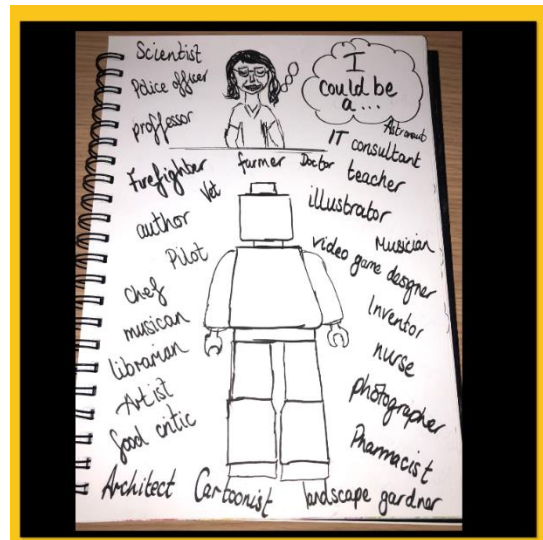 Scientist
Police officer
proffessor
I
could be
a...
Astronaut
IT consultant
teacher
Firefighter
farmer
Doctor
Vet
illustrator
author
Pilot
Musician
video game desgner
Chef
Inventor
musican
nurse
librarian
photographer
Artist
food critic
Pharmacist
Architect
Cartoonist
landscape gardnar